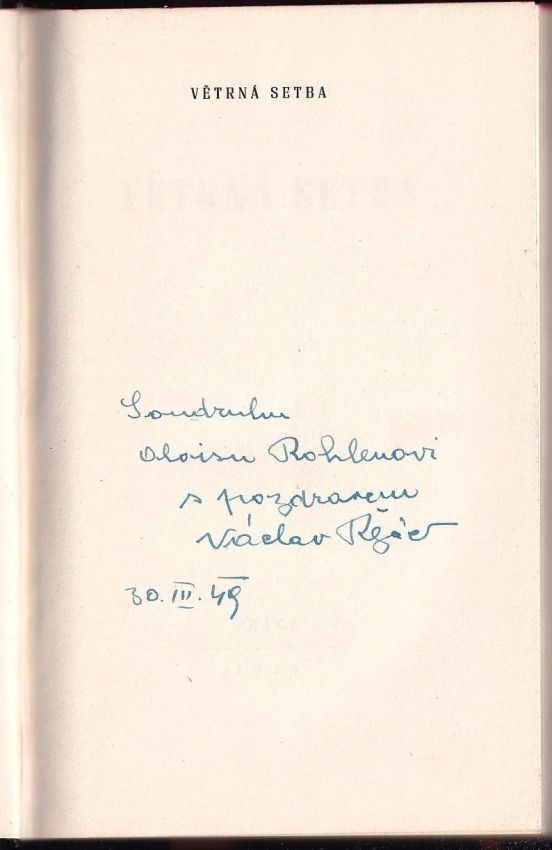 VĚTRNÁ SETBA
Soudruhu
Aloisu Rohlenovi
s pozdravem
Václav Řezáč
30. III. 49